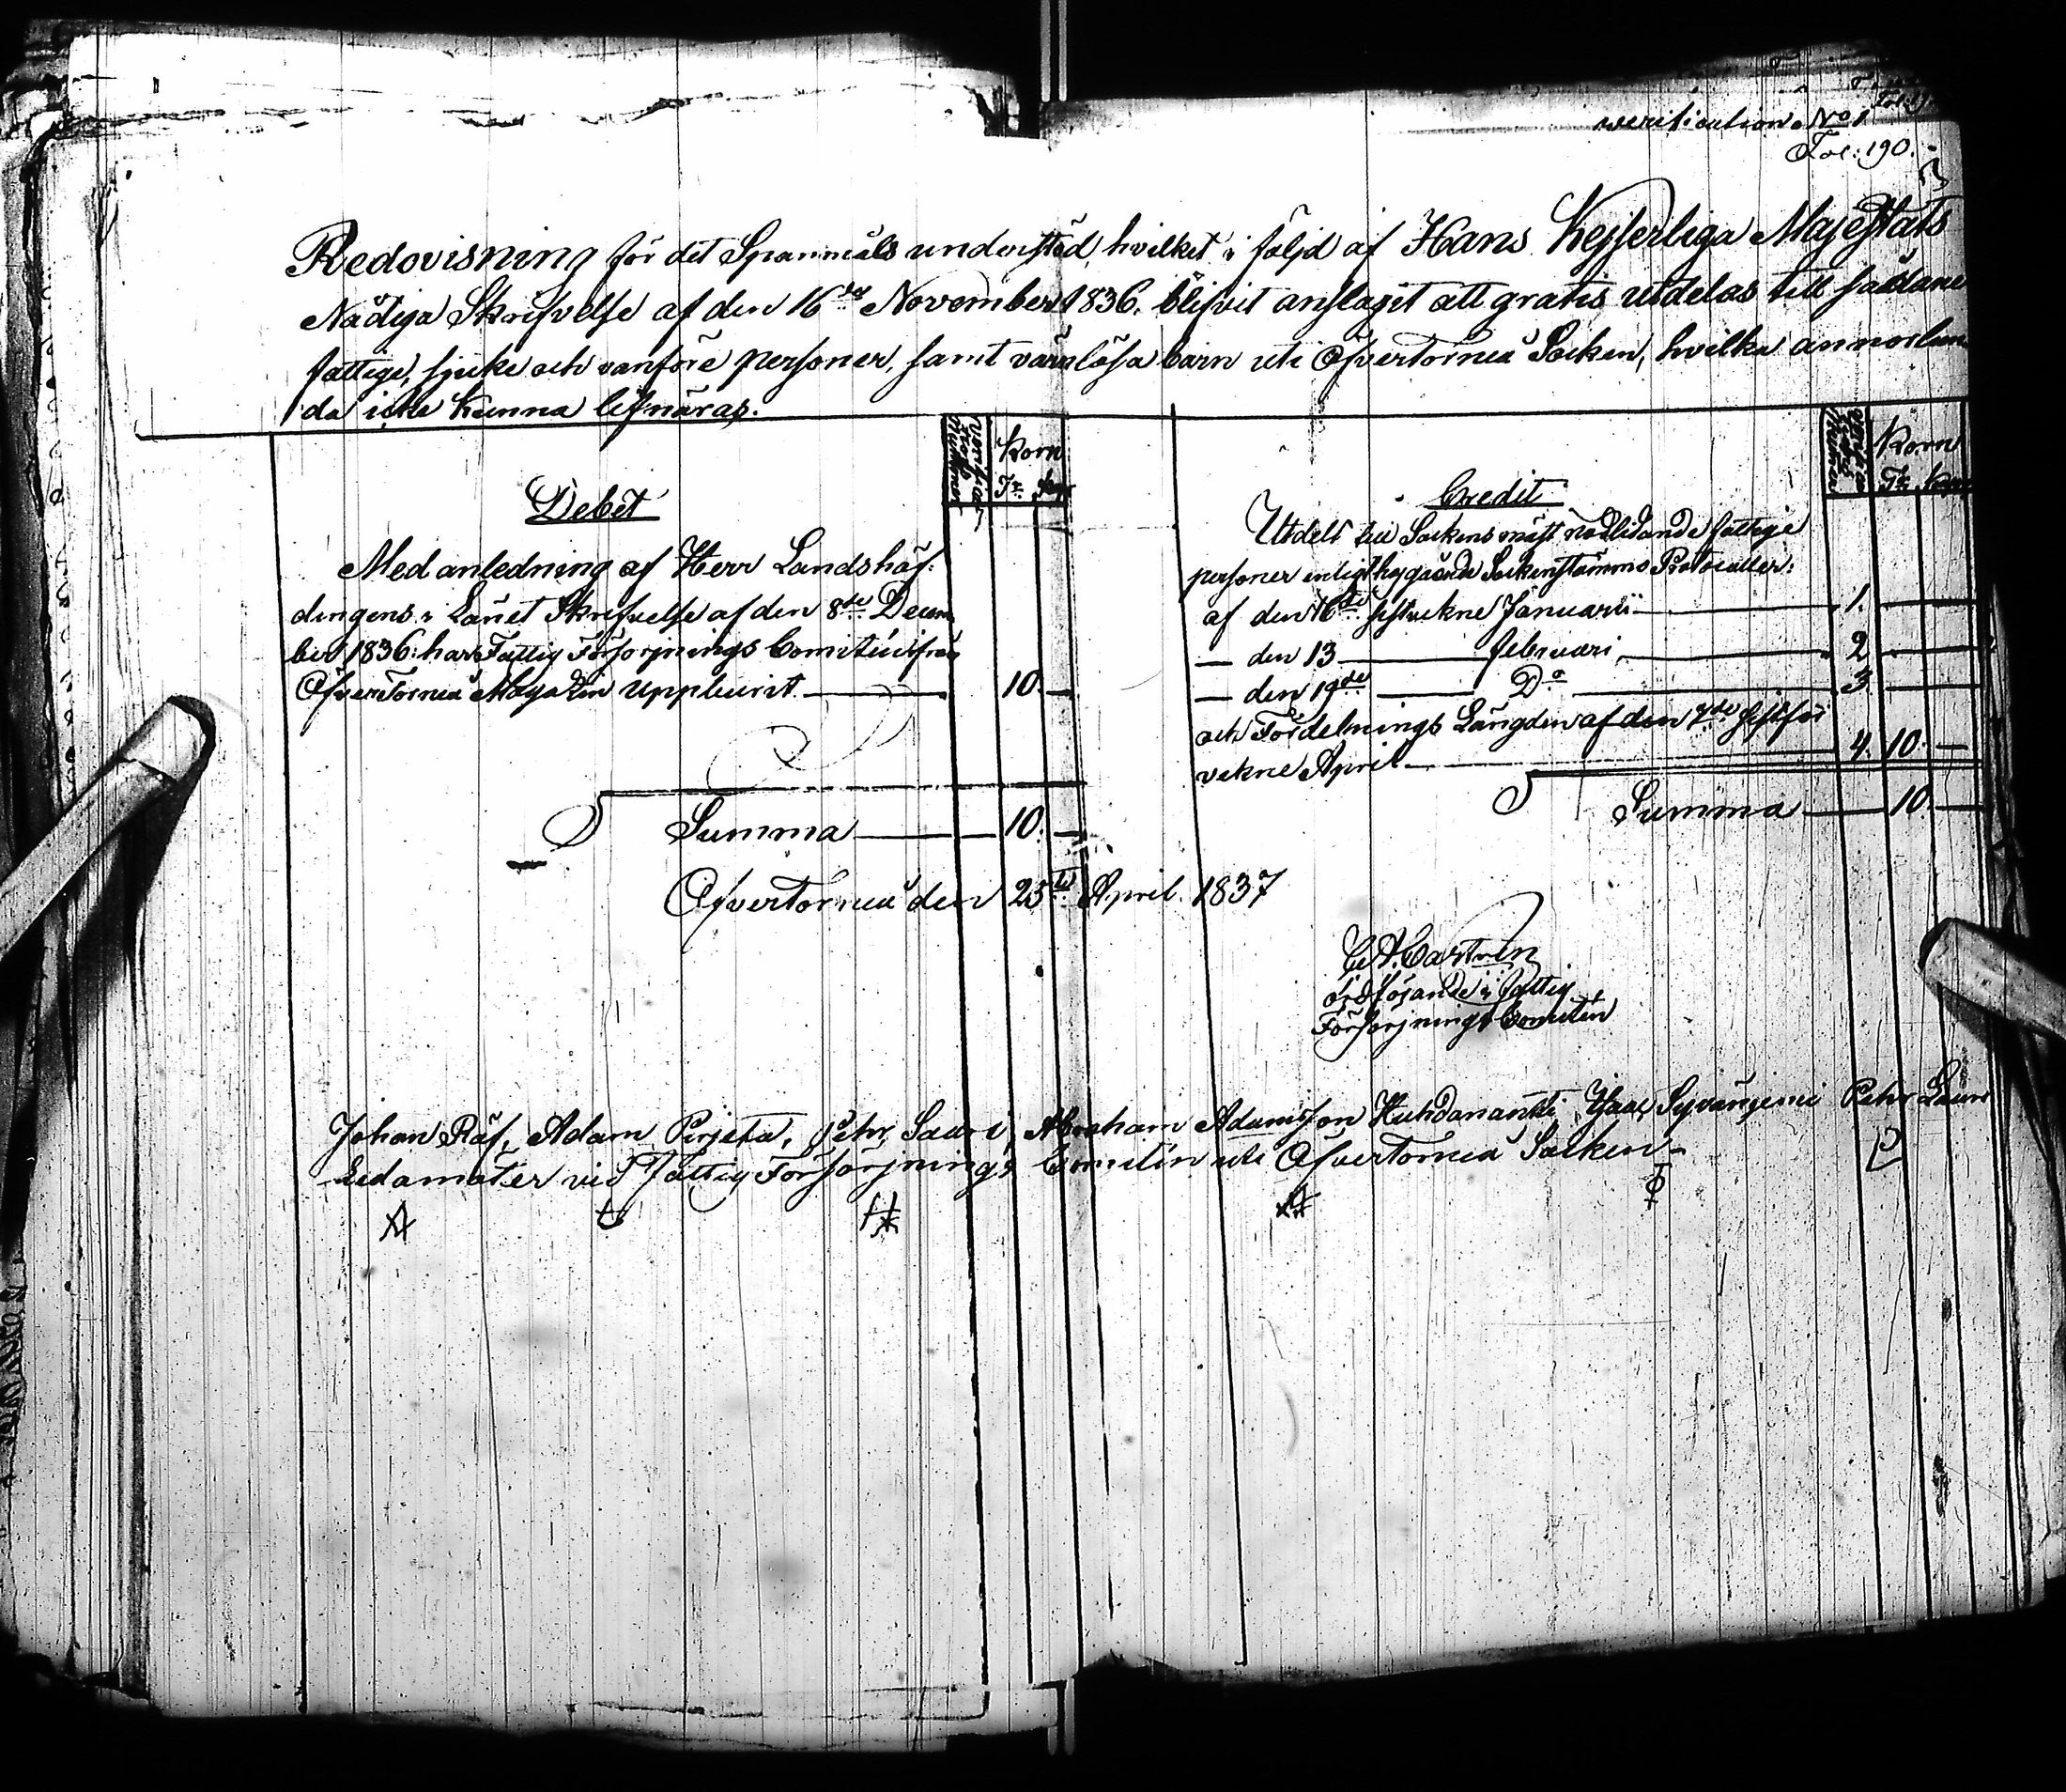 verification No 1
Fol: 190.
Redovisning för det Spanmåls understöd, hvilket i följd af Hans Kejserliga Majestäts
Nådiga Skrifvelse af den 16de November 1836. blifvit anslaget att gratis utdelas till sådane
fattige, sjuke och vanföre personer, samt värnlösa barn uti Öfvertorneå Socken, hvilka annorlun
da icke kunna lifnäras.
Korn
Tr
Debet
Med anledning af Herr Landshöf-
dingens i Länet Skrifvelse af den 8de Decem
ber 1836. har Fattig Försörjnings Comitéen ifrån
Öfvertorneå Magazin uppburit 10. —
Summa — 10. —
Korn
Tr
Credit
Utdelt till Sockens mäst nödlidande fattige
personer enligt hogående Sockenstämmo Protocoller:
af den 16de sistvekne Januarii — 1. —
— den 13 — februari, — 2 —
— den 19de — Do — 3. —
och Fördelnings Längden af den 7de sistför
vekne April — 4. 10. —
Summa — 10. —
Öfvertorneå den 25te April. 1837
C A Castrén
ordförande i fattig
Försörjnings Comitén
Johan Räf, Adam Pirjeta, Pehr Lauri, Abraham Adamsson Huhdananti, Isaac Syvänjemi Pehr Lauri
Ledamöter vid Fattig Försörjnings Comitén uti Öfvertorneå Socken —